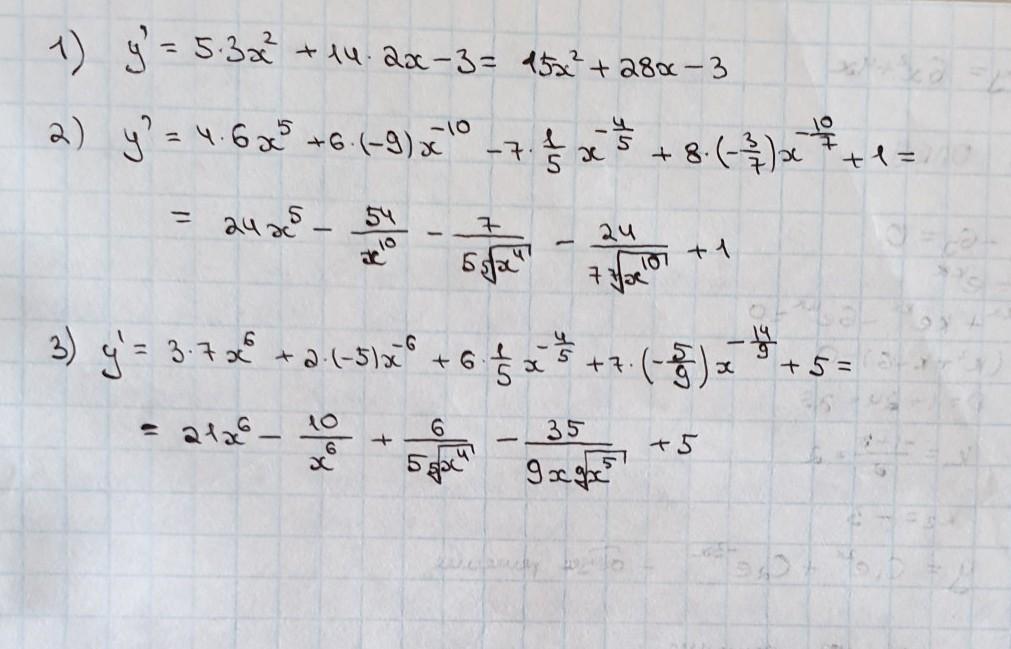 1) y' = 5·3x² + 14·2x − 3 = 15x² + 28x − 3
2) y' = 4·6x⁵ + 6·(−9)x⁻¹⁰ − 7·1/5 x^(−4/5) + 8·(−3/7)x^(−10/7) + 1 =
= 24x⁵ − 54/x¹⁰ − 7/(5 ⁵√x⁴) − 24/(7 ⁷√x¹⁰) + 1
3) y' = 3·7x⁶ + 2·(−5)x⁻⁶ + 6·1/5 x^(−4/5) + 7·(−5/9)x^(−14/9) + 5 =
= 21x⁶ − 10/x⁶ + 6/(5 ⁵√x⁴) − 35/(9x ⁹√x⁵) + 5